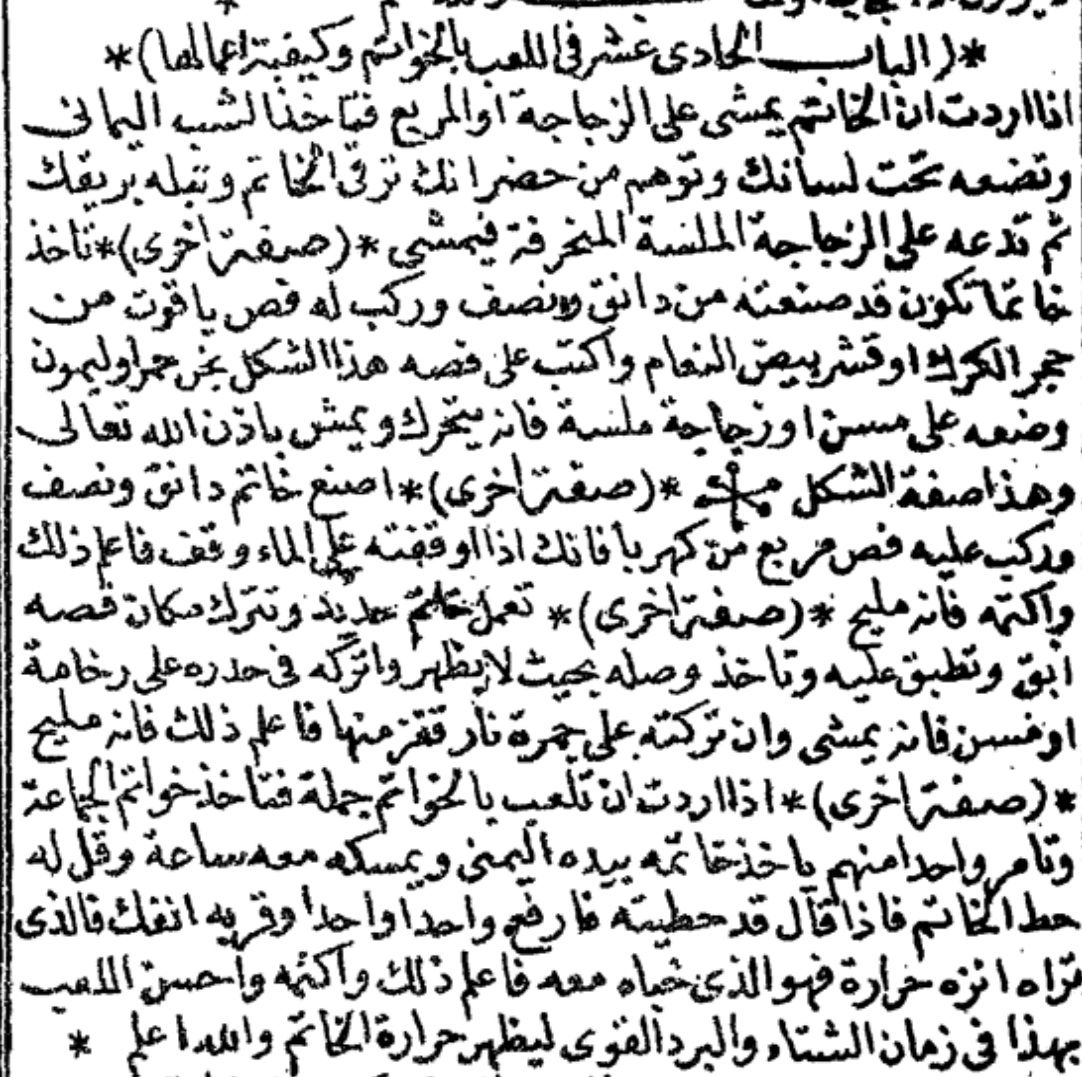 *(الباب الحادى عشر فى اللعب بالخواتم وكيفية اعمالها)*
اذا اردت ان الخاتم يمشى على الزجاجة او المربع فتاخذ الشب اليمانى
وتضعه تحت لسانك وتوهم من حضر انك ترقى الخاتم وتبله بريقك
ثم تدعه على الزجاجة الملسة المنحرفة فيمشى *(صفة اخرى)* تاخذ
خاتما تكون قد صنعته من دانق ونصف وركب له فص ياقوت من
حجر الكرك او قشر بيض النعام واكتب على فصه هذا الشكل او ليمون
وضعه على مسن او زجاجة ملسة فانه يتحرك ويمش باذن الله تعالى
وهذا صفة الشكل *(صفة اخرى)* اصنع خاتم دانق ونصف
وركب عليه فص مربع من كهربا فانك اذا اوقفته على الماء وقف فاعلم ذلك
واكتمه فانه مليح *(صفة اخرى)* تعمل خاتم حديد وتترك مكان فصه
وتطبق عليه وتاخذ وصله بحيث لا يظهر واتركه فى حدره على رخامة
او مسن فانه يمشى وان تركته على جمرة نار قفز منها فاعلم ذلك فانه مليح
*(صفة اخرى)* اذا اردت ان تلعب بالخواتم جملة فتاخذ خواتم الجماعة
وتامر واحدا منهم ياخذ خاتمه بيده اليمنى ويمسكه معه ساعة وقل له
حط الخاتم فاذا قال قد حطيته فارفع واحدا واحدا وقربه انفك فالذى
تراه حرارة فهو الذى خباه معه فاعلم ذلك واكتمه واحسن اللعب
بهذا فى زمان الشتاء والبرد القوى ليظهر حرارة الخاتم والله اعلم *